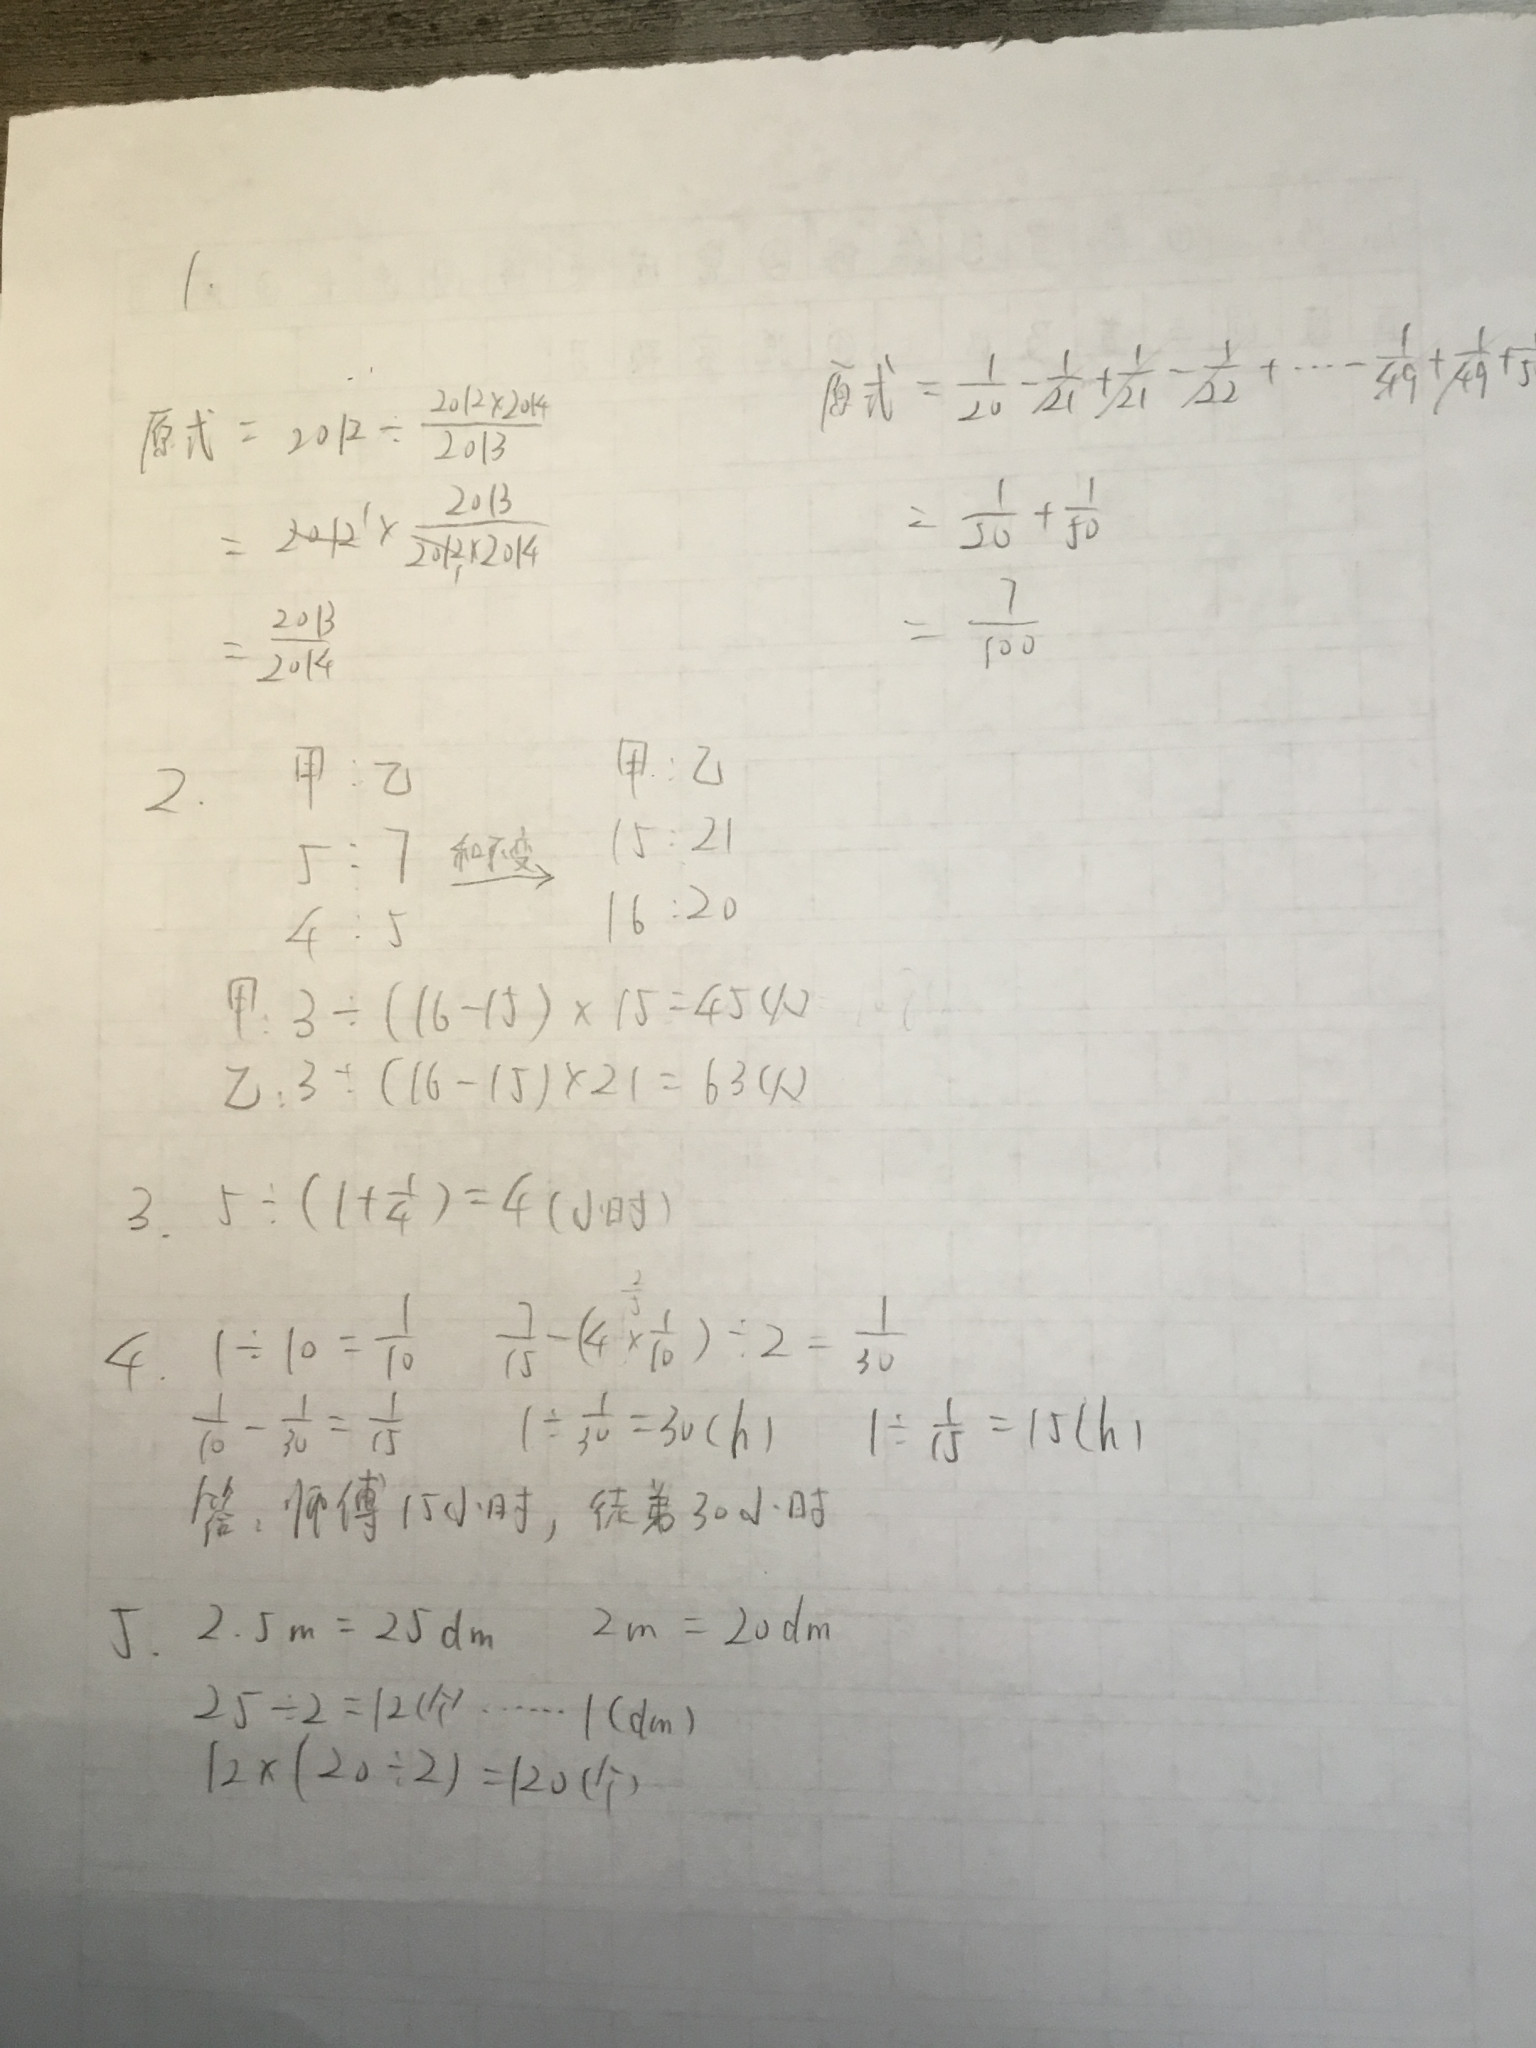 1.
原式 = 2012 ÷ 2012×2014/2013
= 2012 1 × 2013/2012 1 ×2014
= 2013/2014
原式 = 1/20 - 1/21 + 1/21 - 1/22 + ⋯⋯ - 1/49 + 1/49 +
= 1/20 + 1/50
= 7/100
2. 甲 : 乙 甲 : 乙
5 : 7 和不变 → 15 : 21
4 : 5 16 : 20
甲: 3 ÷ (16-15) × 15 = 45(人)
乙: 3 ÷ (16-15) × 21 = 63(人)
3. 5 ÷ (1+1/4) = 4 (小时)
2/5
4. 1÷10 = 1/10 7/15 - (4×1/10) ÷ 2 = 1/30
1/10 - 1/30 = 1/15 1÷1/30 = 30(h) 1÷1/15 = 15(h)
答: 师傅15小时, 徒弟30小时
5. 2.5m = 25dm 2m = 20dm
25÷2 = 12(个) ⋯⋯ 1(dm)
12×(20÷2) = 120(个)